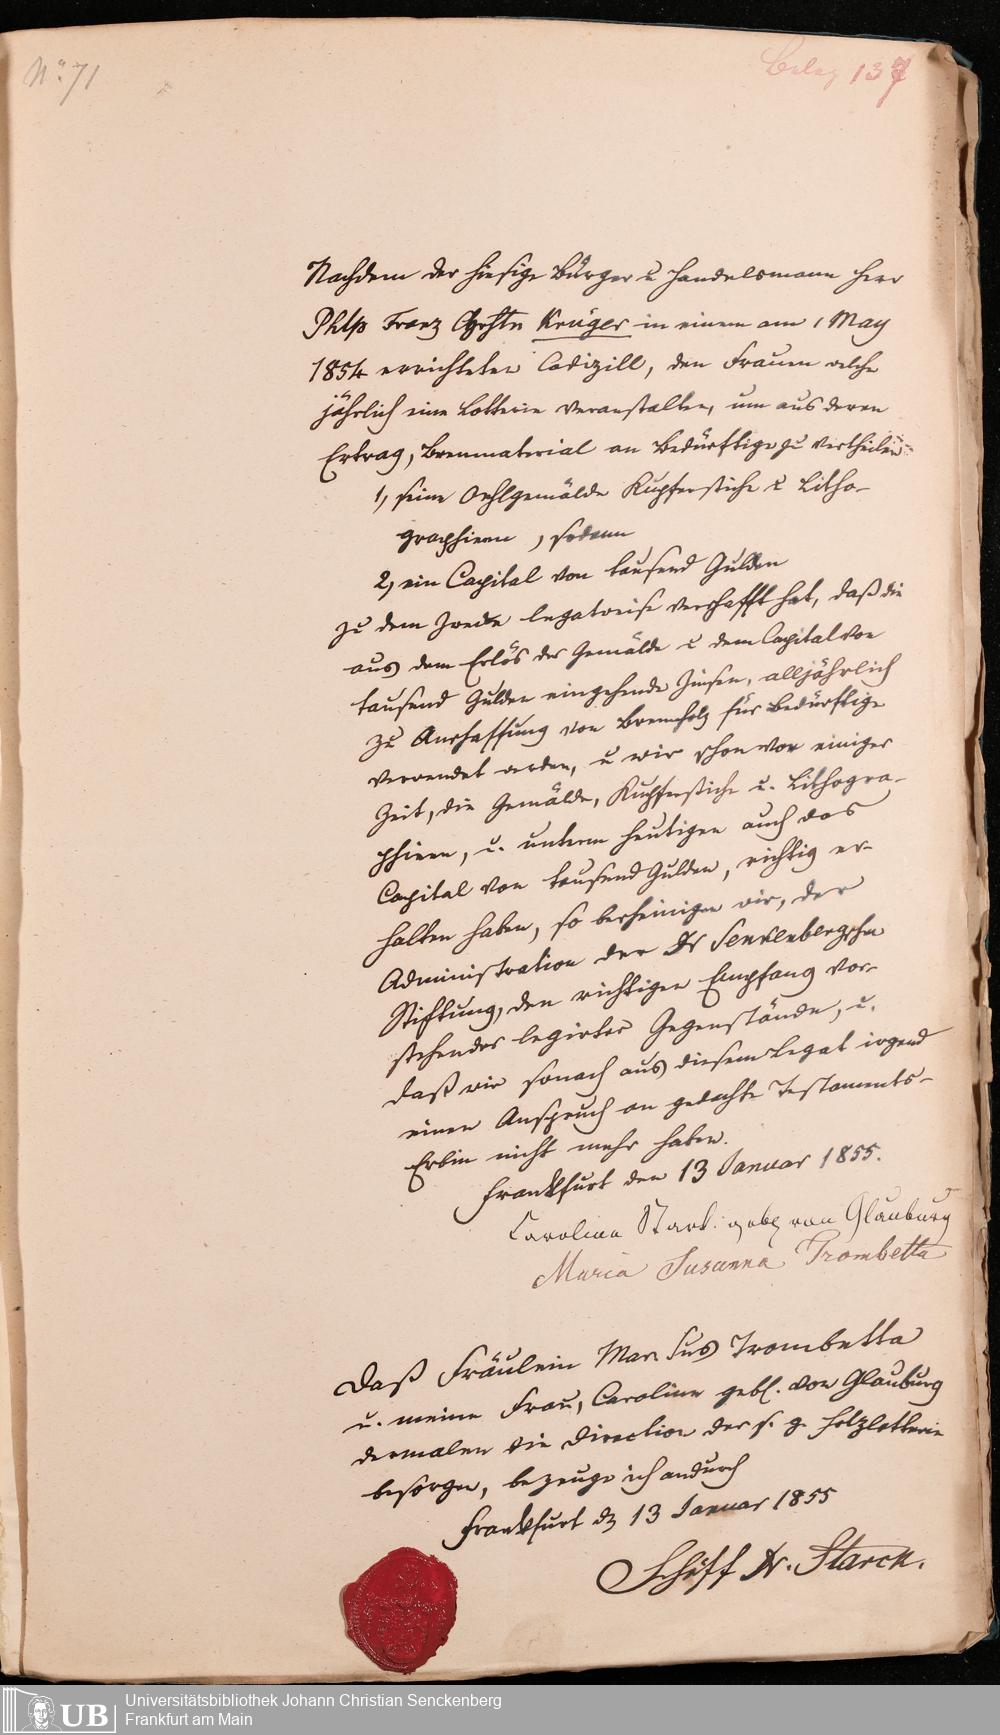 No. 71
Beleg 137
Nachdem der hiesige Bürger u Handelsmann Herr
Phlp Franz Chrstn Krüger in einem am 1 May
1854 errichteten Codizill, den Frauen welche
jährlich eine Lotterie veranstalten, um aus deren
Ertrag, Brennmaterial an Bedürftige zu vertheilen
1, seine Oehlgemälde Kupferstiche u Litho-
graphieen, sodann
2, ein Capital von tausend Gulden
zu dem Zwecke legatweise verschafft hat, daß die
aus dem Erlös der Gemälde u dem Capital von
tausend Gulden eingehende Zinsen, alljährlich
zu Anschaffung von Brennholz für Bedürftige
verwendet werden, u wir schon vor einiger
Zeit, die Gemälde, Kupferstiche u. Lithogra-
phieen, u. unterm heutigen auch das
Capital von tausend Gulden, richtig er-
halten haben, so bescheinigen wir, der
Administration der Dr Senkenbergschen
Stiftung, den richtigen Empfang vor-
stehender legirter Gegenstände, u.
daß wir sonach aus diesem Legat irgend
einen Anspruch an gedachte Testaments-
Erbin nicht mehr haben.
Frankfurt den 13 Januar 1855.
Carolina Stark. geb. von Glauburg
Maria Susanna Trombetta
Daß Fräulein Mar. Sus Trombetta
u. meine Frau, Caroline gebl. von Glauburg
dermalen die Direction der s. g. Holzlotterie
besorgen, bezeuge ich andurch
Frankfurt d 13 Januar 1855
Schöff Dr. Starck.
UB
Universitätsbibliothek Johann Christian Senckenberg
Frankfurt am Main